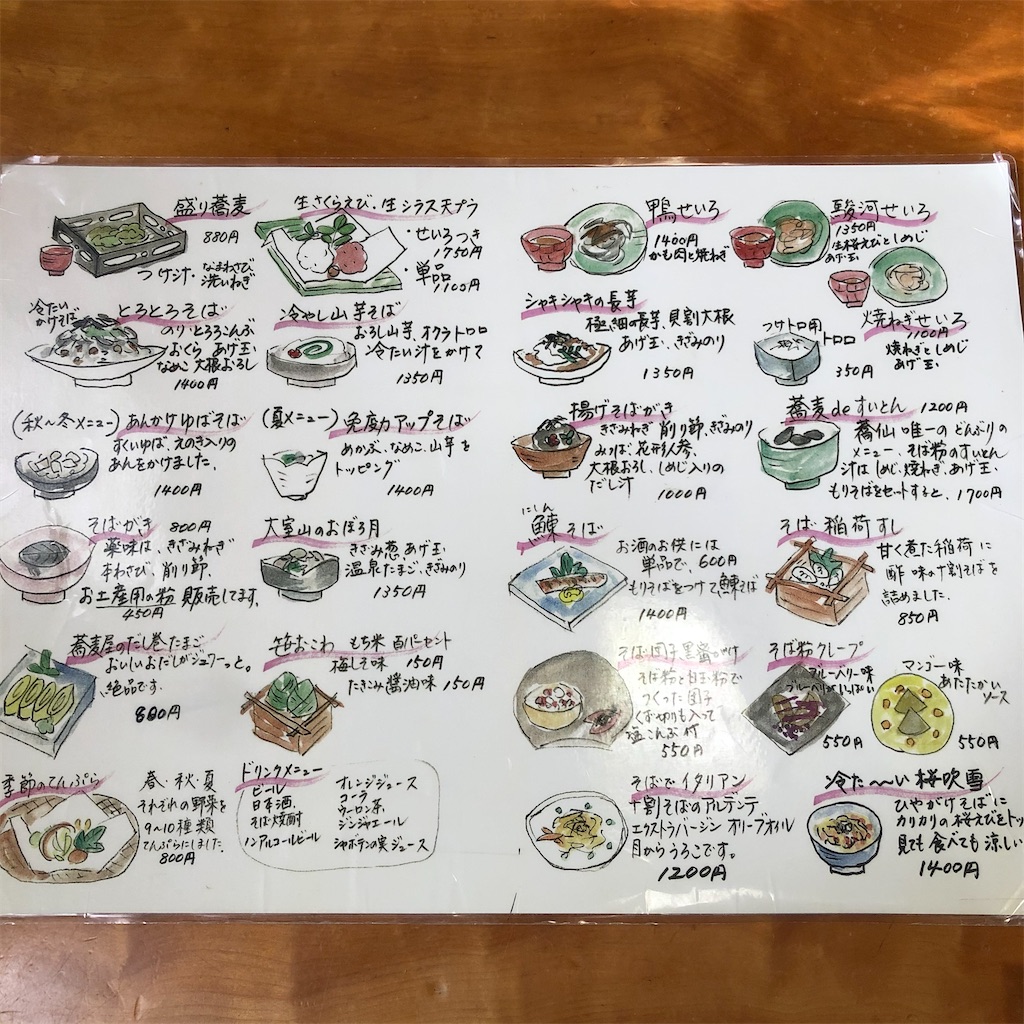 盛り蕎麦
880円
つけ汁・なまわさび
洗いねぎ
生さくらえび、生シラス天プラ
・せいろつき
1750円
・単品
1100円
冷たい
かけそば
とろとろそば
のり・とろろこんぶ
おくら あげ玉
なめこ 大根おろし
1400円
冷やし山芋そば
おろし山芋、オクラトロロ
冷たい汁をかけて
1350円
(秋〜冬メニュー)あんかけゆばそば
すくいゆば、えのき入りの
あんをかけました。
1400円
(夏メニュー)免疫力アップそば
めかぶ、なめこ、山芋を
トッピング
1400円
そばがき 800円
薬味は、きざみねぎ
本わさび、削り節、
お土産用の粉 販売してます。
450円
大室山のおぼろ月
きざみ葱、あげ玉
温泉たまご、きざみのり
1350円
蕎麦屋のだし巻たまご
おいしいおだしがジュワーっと。
絶品です。
800円
笹おこわ もち米 百パーセント
梅しそ味 150円
たきこみ醤油味 150円
季節のてんぷら
春・秋・夏
それぞれの野菜を
9〜10種類
てんぷらにしました。
800円
ドリンクメニュー
ビール
日本酒、
そば焼酎
ノンアルコールビール
オレンジジュース
コーラ
ウーロン茶
ジンジャエール
シャボテンの実ジュース
鴨せいろ
1400円
かも肉と焼ねぎ
駿河せいろ
1350円
生桜えびとしめじ
あげ玉
シャキシャキの長芋
極細の長芋、貝割大根
あげ玉、きざみのり
1350円
つけトロ用
トロロ
350円
焼ねぎせいろ
1100円
焼ねぎとしめじ
あげ玉
揚げそばがき
きざみねぎ 削り節、きざみのり
みつば、花形人参、
大根おろし、しめじ入りの
だし汁
1000円
蕎麦deすいとん 1200円
蕎仙唯一のどんぶりの
メニュー、そば粉のすいとん
汁はしめじ、焼ねぎ、あげ玉、
もりそばをセットすると、1700円
にしん
鰊そば
お酒のお供には
単品で、600円
もりそばをつけて鰊そば
1400円
そば稲荷すし
甘く煮た稲荷に
酢味の十割そばを
詰めました。
850円
そば団子黒蜜がけ
そば粉と白玉粉で
つくった団子
くず切りも入って
塩こんぶ付
550円
そば粉クレープ
ブルーベリー味
ブルーベリーがいっぱい
550円
マンゴー味
あたたかい
ソース
550円
そばでイタリアン
十割そばのアルデンテ、
エクストラバージン オリーブオイル
目からうろこです。
1200円
冷た〜い桜吹雪
ひやがけそばに
カリカリの桜えびをトッ
見ても食べても涼しい
1400円